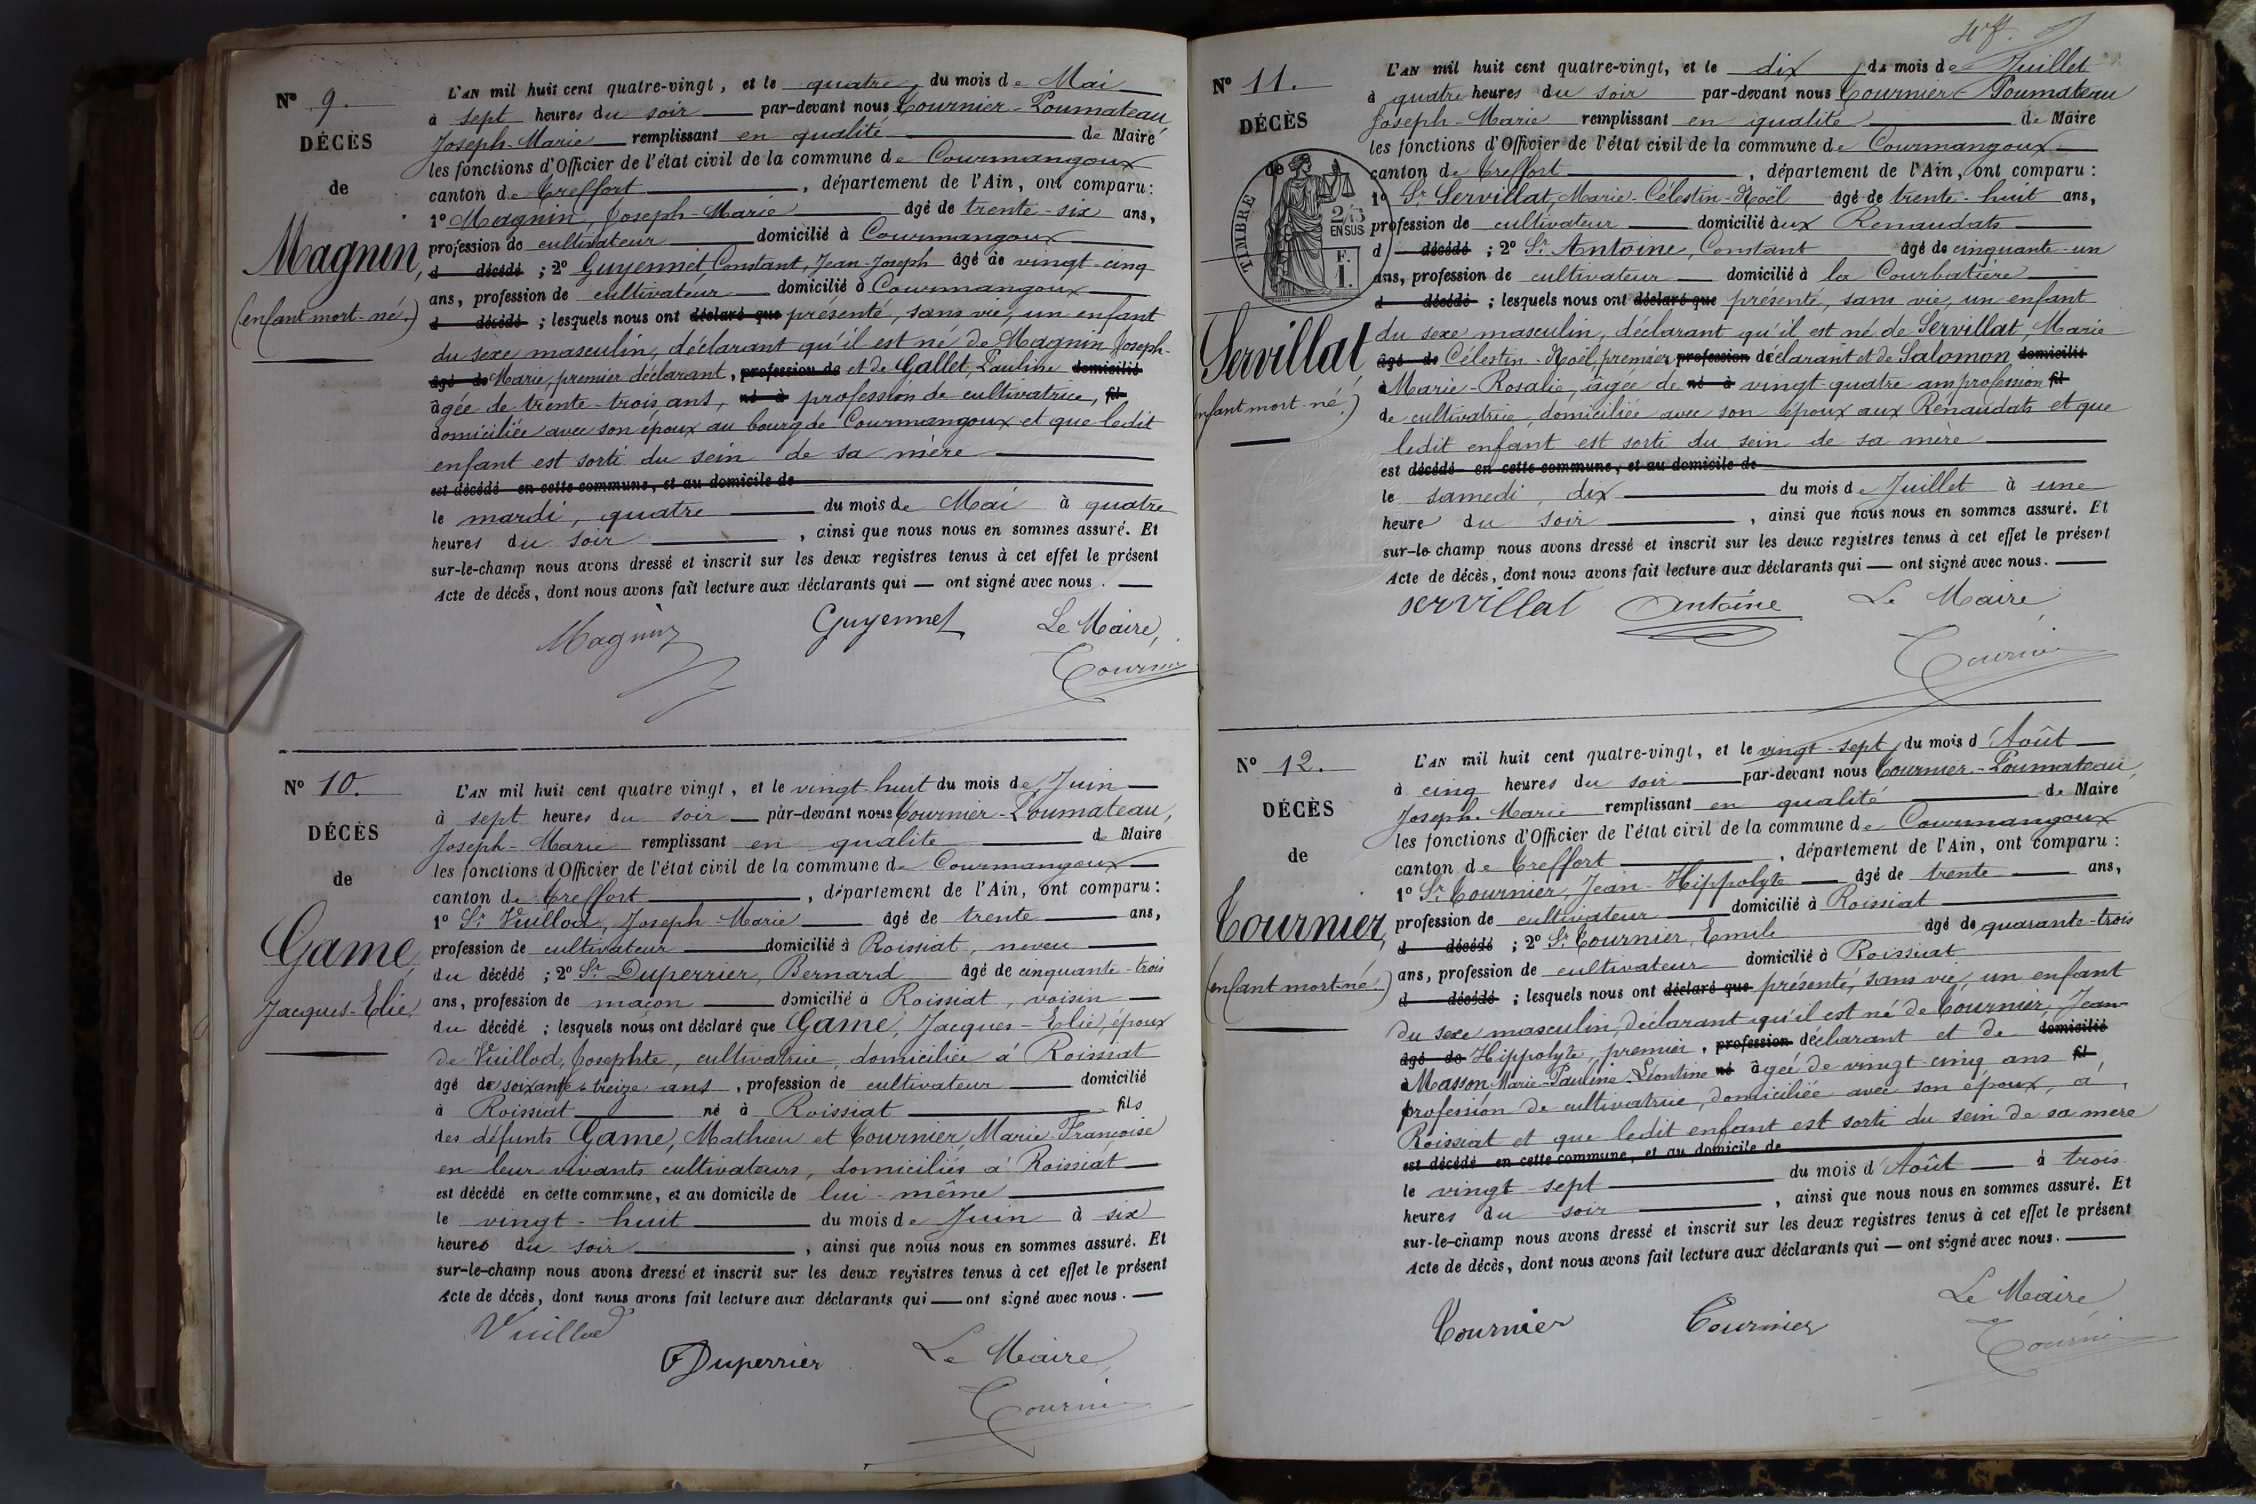 N° 9.
DÉCÈS
de
Magnin,
(enfant mort-né.)
L'AN mil huit cent quatre-vingt, et le quatre du mois de Mai
à sept heures du soir par-devant nous Tournier-Poumateau
Joseph-Marie remplissant en qualité de Maire
les fonctions d'Officier de l'état civil de la commune de Courmangoux
canton de Treffort, département de l'Ain, ont comparu:
1° Magnin, Joseph-Marie âgé de trente-six ans,
profession de cultivateur domicilié à Courmangoux
d décédé ; 2° Guyennet, Constant, Jean-Joseph âgé de vingt-cinq
ans, profession de cultivateur domicilié à Courmangoux
d décédé ; lesquels nous ont déclaré que présenté, sans vie, un enfant
du sexe masculin, déclarant qu'il est né de Magnin Joseph-
âgé de Marie, premier déclarant, profession de et de Gallet, Pauline domicilié
âgée de trente-trois ans, né à profession de cultivatrice, fil
domiciliée avec son époux au bourg de Courmangoux et que ledit
enfant est sorti du sein de sa mère
est décédé en cette commune, et au domicile de
le mardi, quatre du mois de Mai à quatre
heures du soir, ainsi que nous nous en sommes assuré. Et
sur-le-champ nous avons dressé et inscrit sur les deux registres tenus à cet effet le présent
Acte de décès, dont nous avons fait lecture aux déclarants qui — ont signé avec nous.
Magnin Guyennet Le Maire,
Tournier
N° 10.
DÉCÈS
de
Game,
Jacques-Elie.
L'AN mil huit cent quatre vingt, et le vingt-huit du mois de Juin
à sept heures du soir par-devant nous Tournier-Poumateau,
Joseph-Marie remplissant en qualité de Maire
les fonctions d'Officier de l'état civil de la commune de Courmangoux
canton de Treffort, département de l'Ain, ont comparu:
1° Sr Vuillod, Joseph-Marie âgé de trente ans,
profession de cultivateur domicilié à Roissiat, neveu
du décédé ; 2° Sr Duperrier, Bernard âgé de cinquante-trois
ans, profession de maçon domicilié à Roissiat, voisin
du décédé ; lesquels nous ont déclaré que Game, Jacques-Elie, époux
de Vuillod, Josephte, cultivatrice, domiciliée à Roissiat
âgé de soixante-treize ans, profession de cultivateur domicilié
à Roissiat né à Roissiat fils
des défunts Game, Mathieu et Tournier, Marie-Françoise
en leur vivants cultivateurs, domiciliés à Roissiat
est décédé en cette commune, et au domicile de lui-même
le vingt-huit du mois de Juin à six
heures du soir, ainsi que nous nous en sommes assuré. Et
sur-le-champ nous avons dressé et inscrit sur les deux registres tenus à cet effet le présent
Acte de décès, dont nous avons fait lecture aux déclarants qui — ont signé avec nous.
Vuillod
Duperrier Le Maire,
Tournier
N° 11.
DÉCÈS
de
TIMBRE
2/10
EN SUS
F.
1.
Servillat
(enfant mort-né.)
L'AN mil huit cent quatre-vingt, et le dix du mois de Juillet
à quatre heures du soir par-devant nous Tournier-Poumateau
Joseph-Marie remplissant en qualité de Maire
les fonctions d'Officier de l'état civil de la commune de Courmangoux
canton de Treffort, département de l'Ain, ont comparu:
1° Sr Servillat, Marie-Célestin-Noël âgé de trente-huit ans,
profession de cultivateur domicilié aux Renaudats
d décédé ; 2° Sr Antoine, Constant âgé de cinquante-un
ans, profession de cultivateur domicilié à la Courbatière
d décédé ; lesquels nous ont déclaré que présenté, sans vie, un enfant
du sexe masculin, déclarant qu'il est né de Servillat, Marie
âgé de Célestin-Noël, premier, profession déclarant et de Salomon domicilié
à Marie-Rosalie, âgée de né à vingt-quatre ans profession fil
de cultivatrice, domiciliée avec son époux aux Renaudats et que
ledit enfant est sorti du sein de sa mère
est décédé en cette commune, et au domicile de
le samedi, dix du mois de Juillet à une
heure du soir, ainsi que nous nous en sommes assuré. Et
sur-le champ nous avons dressé et inscrit sur les deux registres tenus à cet effet le présent
Acte de décès, dont nous avons fait lecture aux déclarants qui — ont signé avec nous.
Servillat Antoine Le Maire,
Tournier
N° 12.
DÉCÈS
de
Tournier,
(enfant mort-né.)
L'AN mil huit cent quatre-vingt, et le vingt-sept du mois d'Août
à cinq heures du soir par-devant nous Tournier-Poumateau,
Joseph-Marie remplissant en qualité de Maire
les fonctions d'Officier de l'état civil de la commune de Courmangoux
canton de Treffort, département de l'Ain, ont comparu:
1° Sr Tournier, Jean-Hippolyte âgé de trente ans,
profession de cultivateur domicilié à Roissiat
d décédé ; 2° Sr Tournier, Emile âgé de quarante-trois
ans, profession de cultivateur domicilié à Roissiat
d décédé ; lesquels nous ont déclaré que présenté, sans vie, un enfant
du sexe masculin, déclarant qu'il est né de Tournier, Jean-
âgé de Hippolyte, premier, profession déclarant et de domicilié
à Masson Marie-Pauline-Léontine né âgée de vingt-cinq ans fil
profession de cultivatrice, domiciliée avec son époux, à
Roissiat et que ledit enfant est sorti du sein de sa mère
est décédé en cette commune, et au domicile de
le vingt-sept du mois d'Août à trois
heures du soir, ainsi que nous nous en sommes assuré. Et
sur-le-champ nous avons dressé et inscrit sur les deux registres tenus à cet effet le présent
Acte de décès, dont nous avons fait lecture aux déclarants qui — ont signé avec nous.
Le Maire,
Tournier Tournier
Tournier